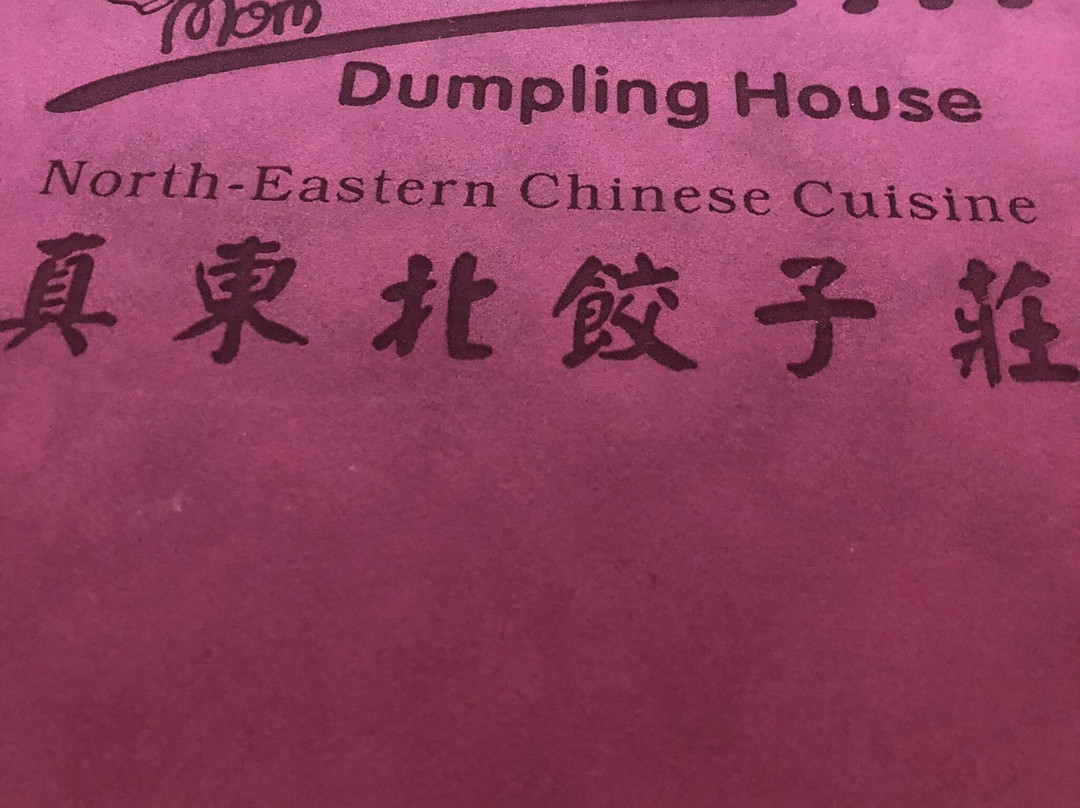 Mom
Dumpling House
North-Eastern Chinese Cuisine
真東北餃子莊